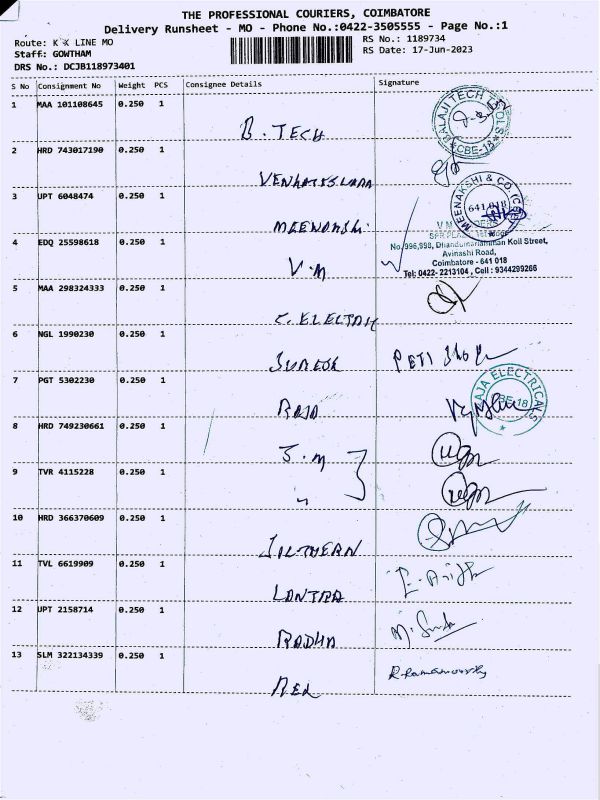 THE PROFESSIONAL COURIERS, COIMBATORE
Delivery Runsheet - MO - Phone No.:0422-3505555 - Page No.:1
Route: K K LINE MO
RS No.: 1189734
Staff: GOWTHAM
RS Date: 17-Jun-2023
DRS No.: DCJB118973401
S No Consignment No Weight PCS Consignee Details Signature
1 MAA 101108645 0.250 1
B.TECH
BALAJI TECH CBE-18
2 HRD 743017190 0.250 1
VENKATESWARA
3 UPT 6048474 0.250 1
MEENAKSHI
MEENAKSHI & CO. 641 018
4 EDQ 25598618 0.250 1
V.M
No.996,998, Koil Street,
Avinashi Road,
Coimbatore - 641 018
Tel: 0422- 2213104, Cell : 9344299266
5 MAA 298324333 0.250 1
6 NGL 1990230 0.250 1
SURESH
7 PGT 5302230 0.250 1
RAJA
RAJA ELECTRICALS
8 HRD 749230661 0.250 1
J.M
9 TVR 4115228 0.250 1
"
10 HRD 366370609 0.250 1
11 TVL 6619909 0.250 1
12 UPT 2158714 0.250 1
RADHA
13 SLM 322134339 0.250 1